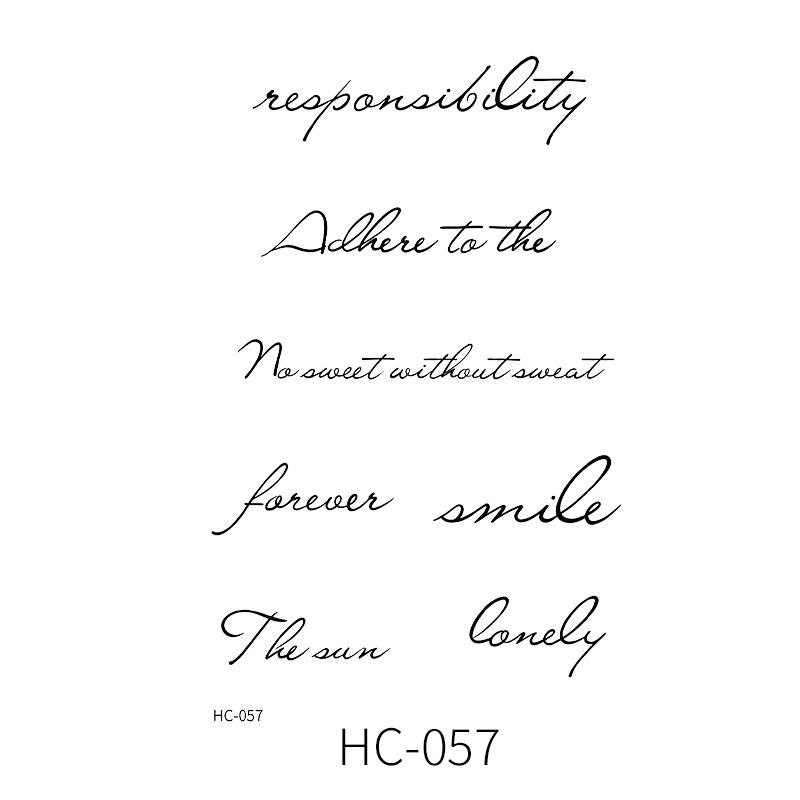 responsibility
Adhere to the
No sweet without sweat
forever smile
The sun lonely
HC-057
HC-057